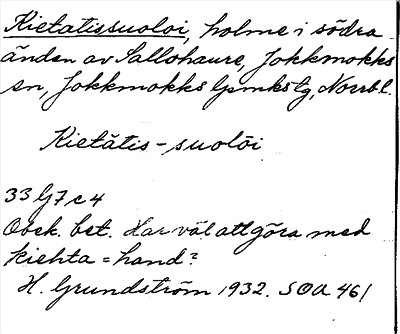 Kietatissuoloi, holme i södra
änden av Sallohaure, Jokkmokks
sn, Jokkmokks lpmks tg, Norrb l.
Kietătis-suolōi
33 G7 c 4
Obek. bet. Har väl att göra med
kiehta = hand?
H. Grundström 1932. SOA 461